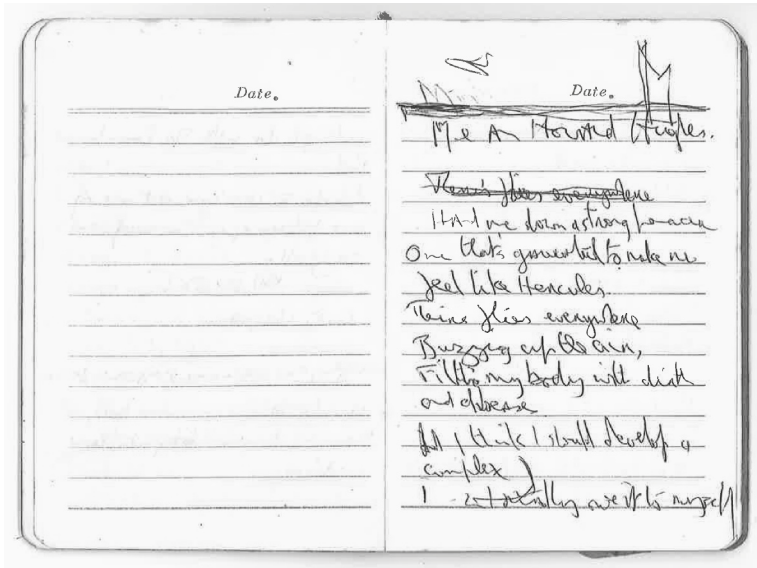 Date.
Date.
Me An Howard Hughes.
There's flies everywhere
Hand me down a strong panacea
One that's guaranteed to make me
feel like Hercules.
There flies everywhere
Buzzing up the air,
Filling my body with dirt
and disease
And I think I should develop a
complex
I totally owe it to myself